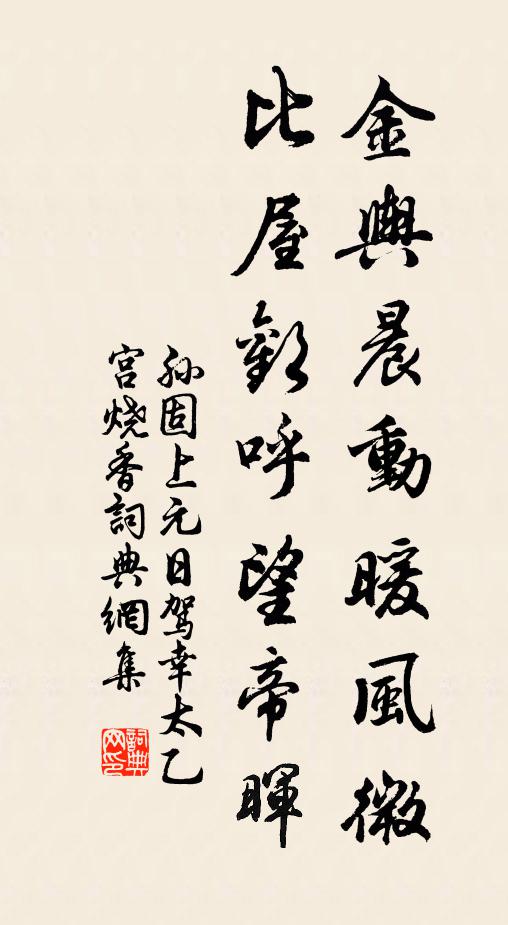 金輿晨動暖風微
比屋歡呼望帝暉
孫固上元日駕幸太乙
宫燒香詞典網集
詞典網印